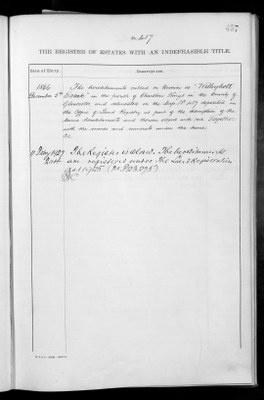 No. 417
THE REGISTER OF ESTATES WITH AN INDEFEASIBLE TITLE.
DATE OF ENTRY.
DESCRIPTION.
1866
December 5th
The Hereditaments called or known as "Withyholt
Estate" in the parish of Charlton Kings in the County of
Gloucester and delineated on the Map No 417 deposited in
the Office of Land Registry as part of the description of the
same Hereditaments and thereon edged with red Together
with the mines and minerals under the same
The Register is closed. The hereditaments
are registered under the Land Registration
Act 1925